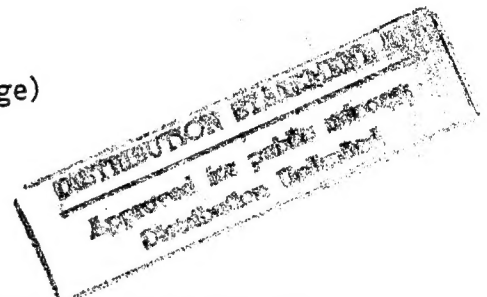 ge)
DISTRIBUTION STATEMENT A
Approved for public release;
Distribution Unlimited